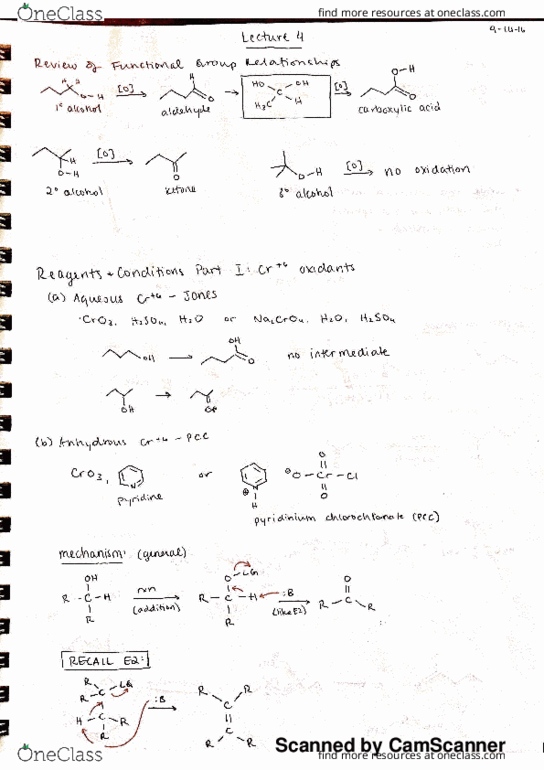 OneClass
find more resources at oneclass.com
Lecture 4
9-16-16
Review of Functional Group Relationships
H H
O-H
1° alcohol
[O]
H
O
aldehyde
HO OH
C
H3C H
[O]
O-H
O
carboxylic acid
H
O-H
2° alcohol
[O]
O
ketone
O-H
3° alcohol
[O]
no oxidation
Reagents + Conditions Part I: Cr+6 oxidants
(a) Aqueous Cr+6 - Jones
CrO3, H2SO4, H2O or Na2CrO4, H2O, H2SO4
OH
OH
O
no intermediate
OH
(b) Anhydrous Cr+6 - PCC
CrO3,
N
pyridine
or
N
⊕
H
⊖O-Cr-Cl
O
O
pyridinium chlorochromate (PCC)
mechanism: (general)
OH
R-C-H
R
rxn
(addition)
O-LG
R-C-H
R
:B
(like E2)
O
R C R
RECALL E2:
R
R-C-LG
H-C-R
R
:B
R R
C
C
R R
OneClass
Scanned by CamScanner
find more resources at oneclass.com